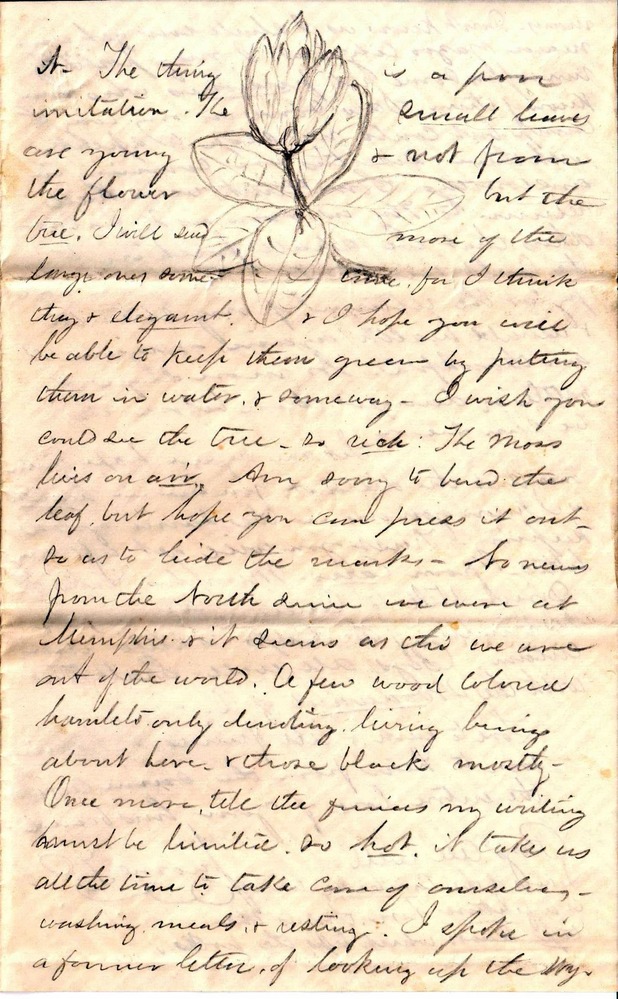 it. The thing is a poor
imitation. The small leaves
are young & not from
the flower but the
tree. I will send more of the
large ones some time, for I think
they r elegant. & I hope you will
be able to keep them green by putting
them in water, & someway - I wish you
could see the tree - so rich: The moss
lives on air. Am sorry to bend the
leaf, but hope you can press it out -
so as to hide the marks - No news
from the North since we were at
Memphis. & it seems as tho we are
out of the world. A few wood colored
hamlets only denoting living beings
about here - & those black mostly -
Once more, tell the juniors my writing
must be limited. so hot. it takes us
all the time to take care of ourselves -
washing, meals, & resting. I spoke in
a former letter, of looking up the Wy-